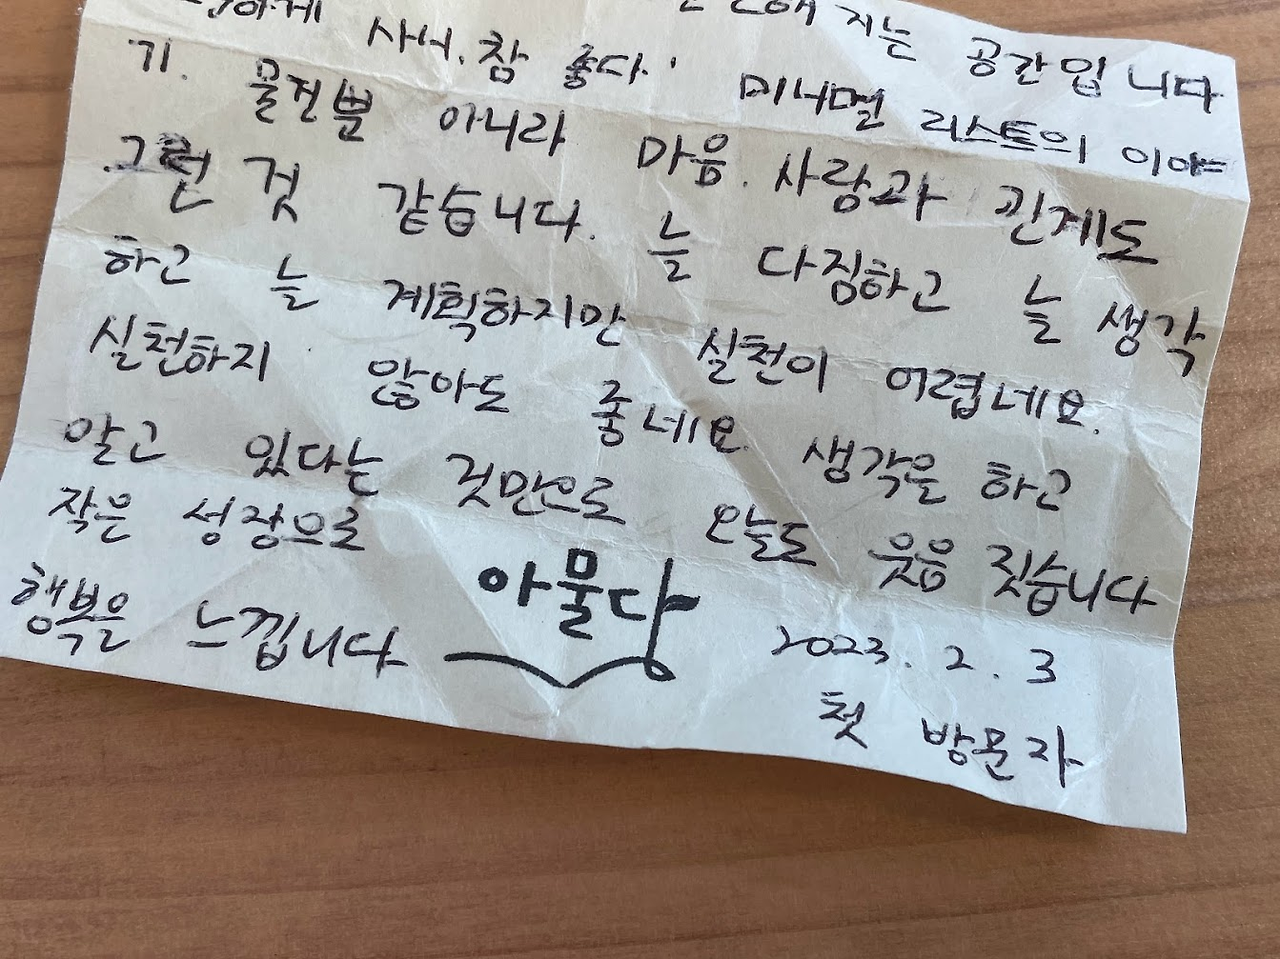 지는 공간입니다
사서.참 좋다. 미니멀 리스트의 이야
기. 물건뿐 아니라 마음.사람과 관계도
그런 것 같습니다. 늘 다짐하고 늘 생각
하고 늘 계획하지만 실천이 어렵네요.
실천하지 않아도 좋네요. 생각을 하고
알고 있다는 것만으로 오늘도 웃음 짓습니다
작은 성장으로
행복을 느낍니다
아물다
2023. 2. 3
첫 방문자